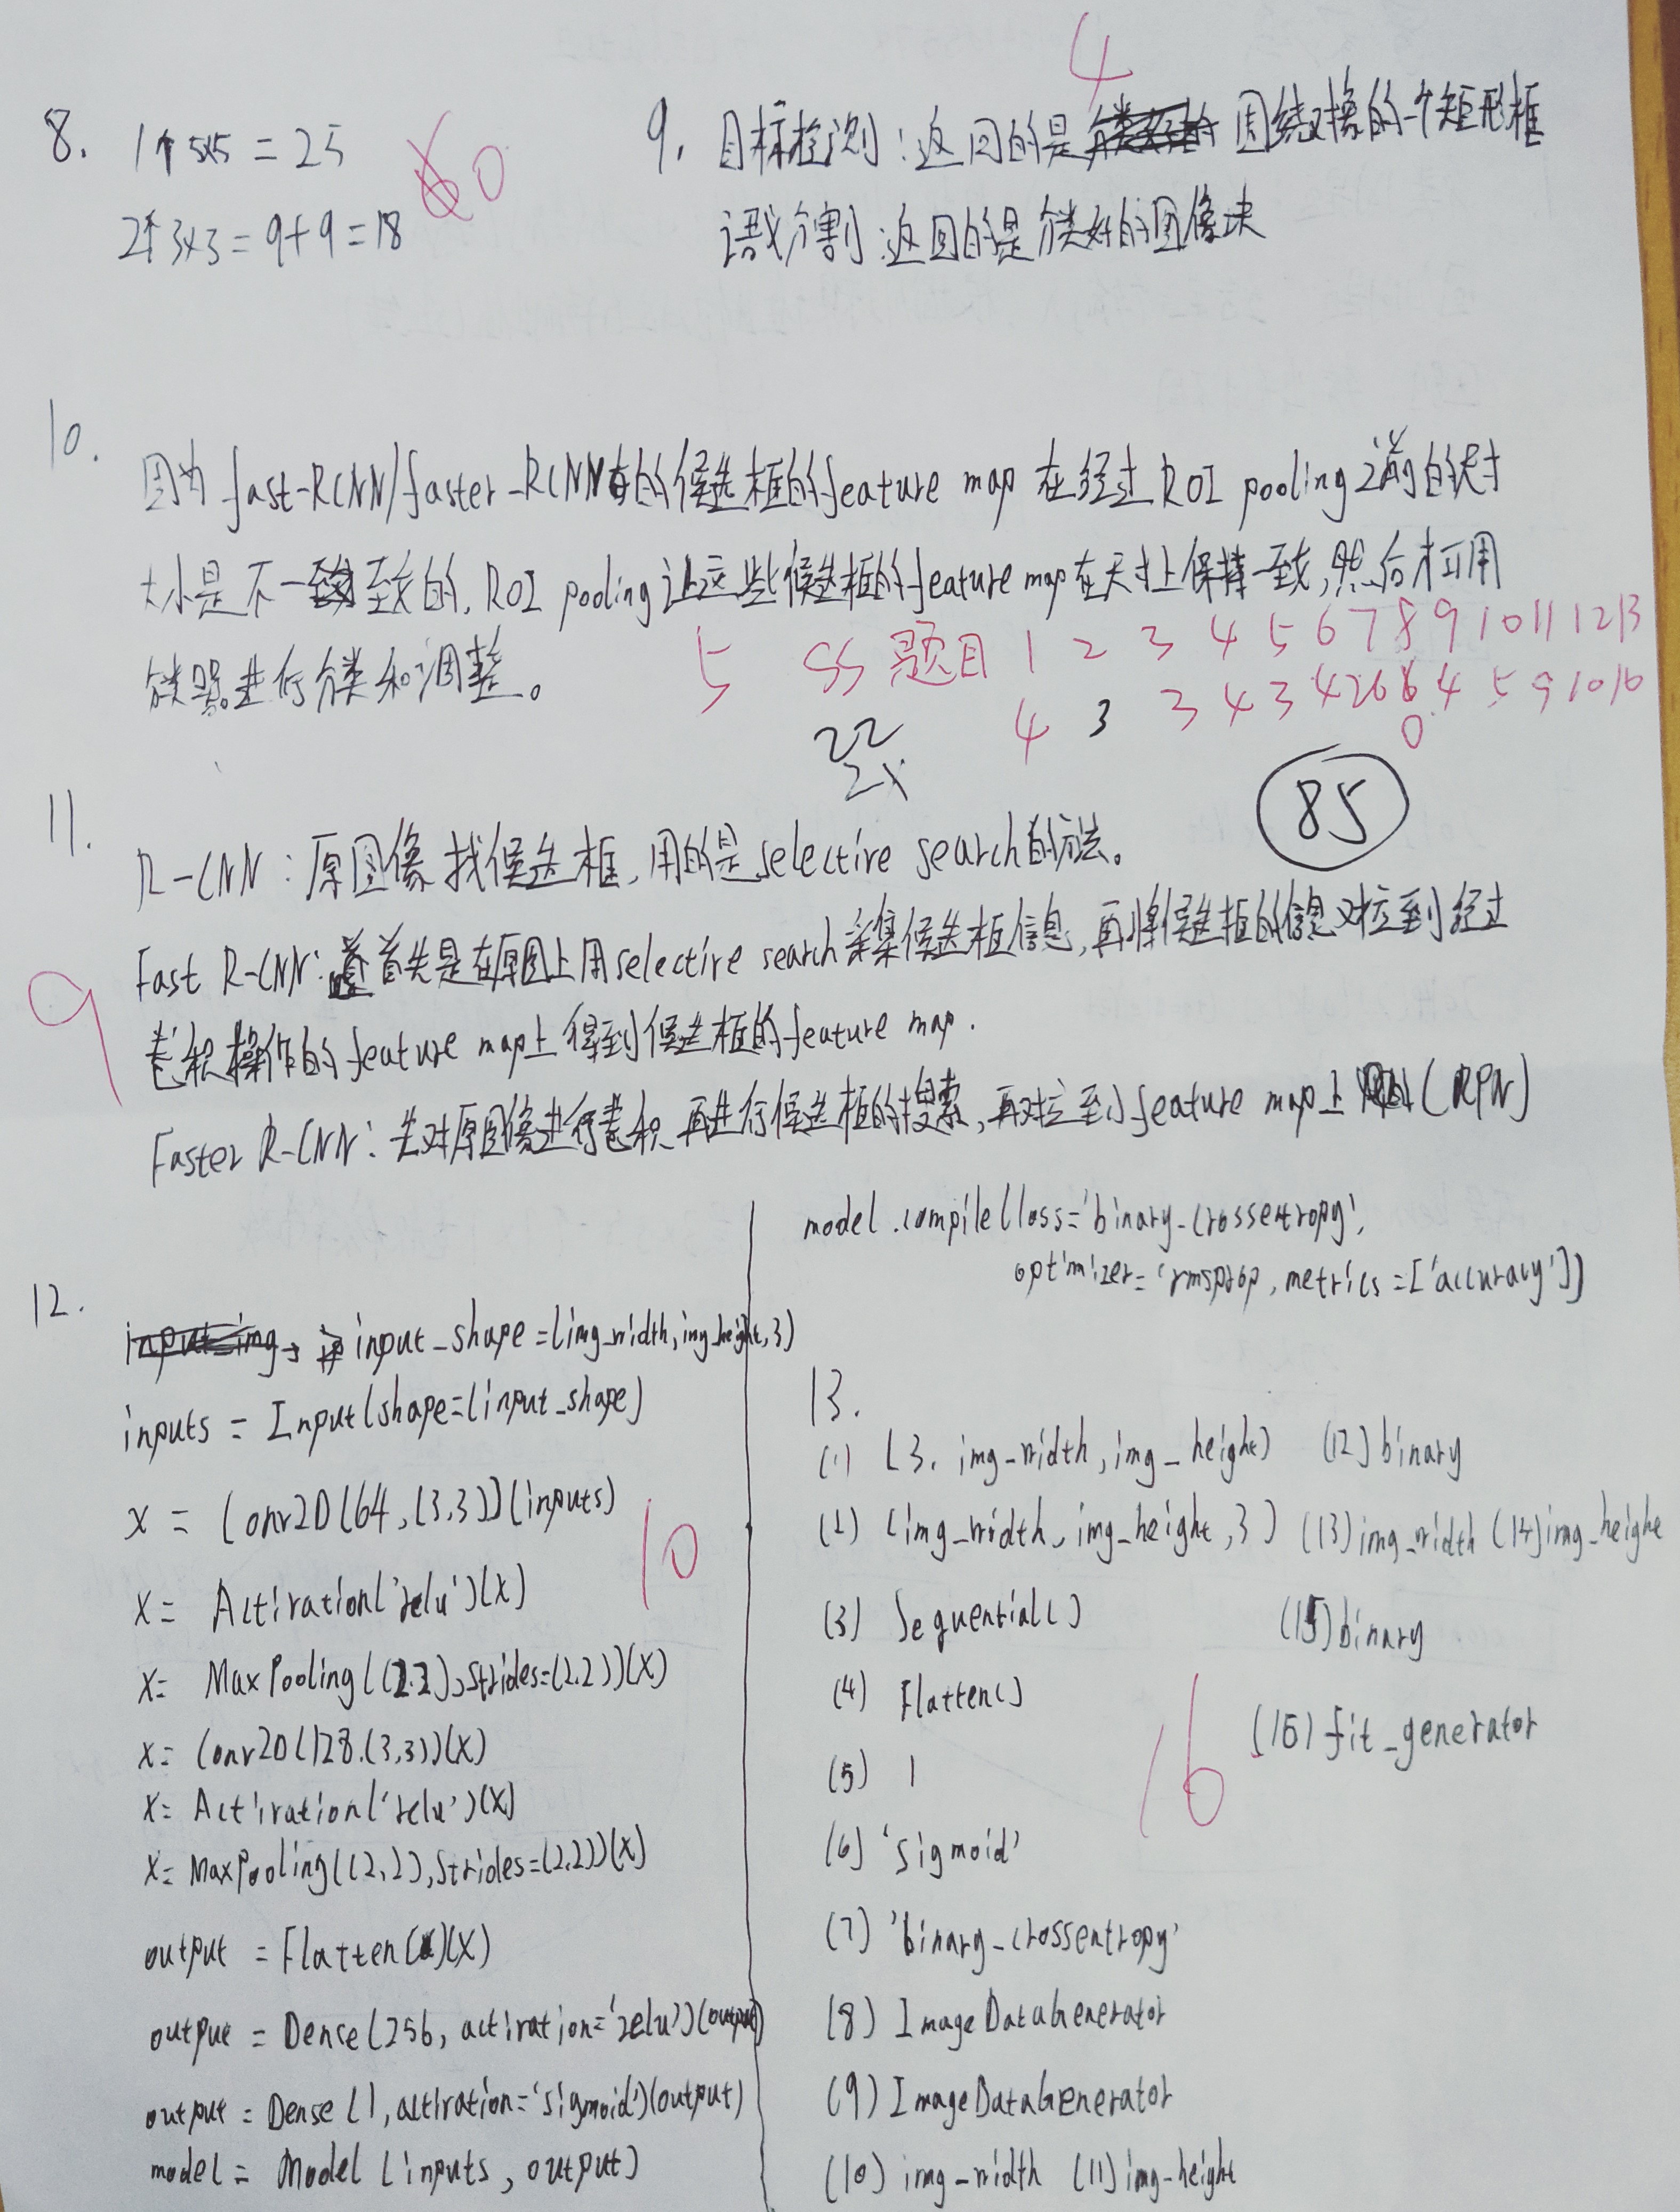 4
8. 1个5x5 = 25
2个3x3 = 9+9 = 18
0
9. 目标检测：返回的是围绕对像的一个矩形框
语义分割：返回的是分类好的图像块
10.
因为 fast-RCNN/faster-RCNN的候选框的feature map 在经过 ROI pooling 之前的尺寸
大小是不一致的, ROI pooling 让这些候选框的feature map在尺寸上保持一致, 然后才可用
分类器进行分类和调整。
5 SS 题目 1 2 3 4 5 6 7 8 9 10 11 12 13
4 3 3 4 3 4 26 4 5 9 10 16
0
22
85
11.
R-CNN : 原图像找候选框, 用的是selective search的方法。
Fast R-CNN: 首先是在原图上用selective search采集候选框信息, 再将候选框的信息对应到经过
卷积操作的feature map上得到候选框的feature map.
9
Faster R-CNN: 先对原图像进行卷积 再进行候选框的搜索, 再对应到feature map上 (RPN)
12.
input_shape=(img_width, img_height, 3)
inputs = Input(shape=(input_shape)
x = Conv2D(64, (3,3))(inputs)
10
x = Activation('relu')(x)
x= MaxPooling((2.2), strides=(2.2))(x)
x= Conv2D(128.(3,3))(x)
x= Activation('relu')(x)
x= MaxPooling((2,2), strides=(2,2))(x)
output = Flatten()(x)
output = Dense(256, activation='relu')(output)
output = Dense(1, activation='sigmoid')(output)
model = Model (inputs, output)
model.compile(loss='binary_crossentropy',
optimizer='rmsprop, metrics=['accuracy'])
13.
(1) (3, img_width, img_height) (12) binary
(2) (img_width, img_height, 3) (13) img_width (14) img_height
(3) Sequential() (15) binary
(4) Flatten()
(16) fit_generator
(5) 1
16
(6) 'sigmoid'
(7) 'binary_crossentropy'
(8) ImageDataGenerator
(9) ImageDataGenerator
(10) img_width (11) img_height